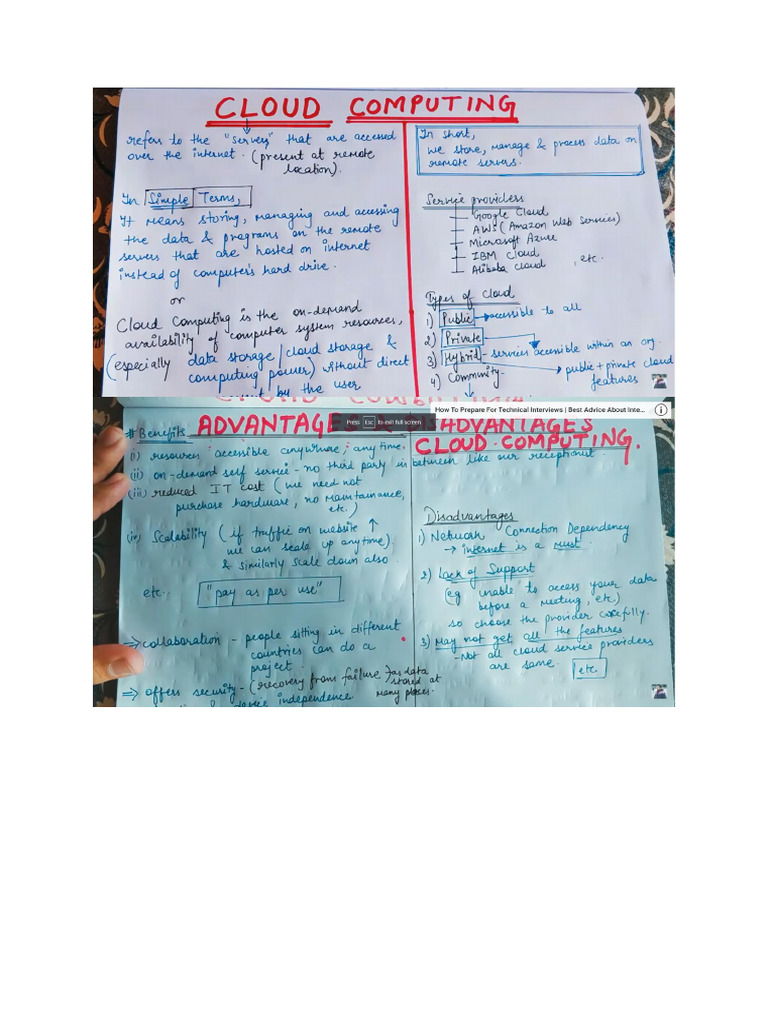 CLOUD COMPUTING
refers to the "Servers" that are accessed
over the internet. (present at remote
location).
In Simple Terms,
It means storing, managing and accessing
the data & programs on the remote
servers that are hosted on internet
instead of computer's hard drive.
or
Cloud Computing is the on-demand
availability of computer system resources,
(especially data storage/cloud storage &
computing power) without direct
by the user
In short,
we store, manage & process data on
remote servers.
Service providers
Google Cloud
AWS (Amazon Web Services)
Microsoft Azure
IBM Cloud
Alibaba cloud, etc.
Types of Cloud
1) Public → accessible to all
2) Private
3) Hybrid - services accessible within an org.
→ public + private cloud
features
4) Community
How To Prepare For Technical Interviews | Best Advice About Inte...
Press Esc to exit full screen
ADVANTAGE DISADVANTAGES
CLOUD COMPUTING.
# Benefits
(i) resources accessible anywhere, anytime.
(ii) on-demand self service - no third party in between like our receptionist.
(iii) reduced IT cost (we need not
purchase hardware, no maintainance,
etc.)
(iv) Scalability (if traffic on website ↑
we can scale up anytime)
& similarly scale down also.
etc. "pay as per use"
⇒ collaboration - people sitting in different
countries can do a
project.
⇒ offers security - (recovery from failure) as data
stored at
many places.
device independence
Disadvantages
1) Network Connection Dependency
→ internet is a must.
2) Lack of Support
(eg unable to access your data
before a meeting, etc.)
so choose the provider carefully.
3) May not get all the features
- Not all cloud service providers
are same. etc.